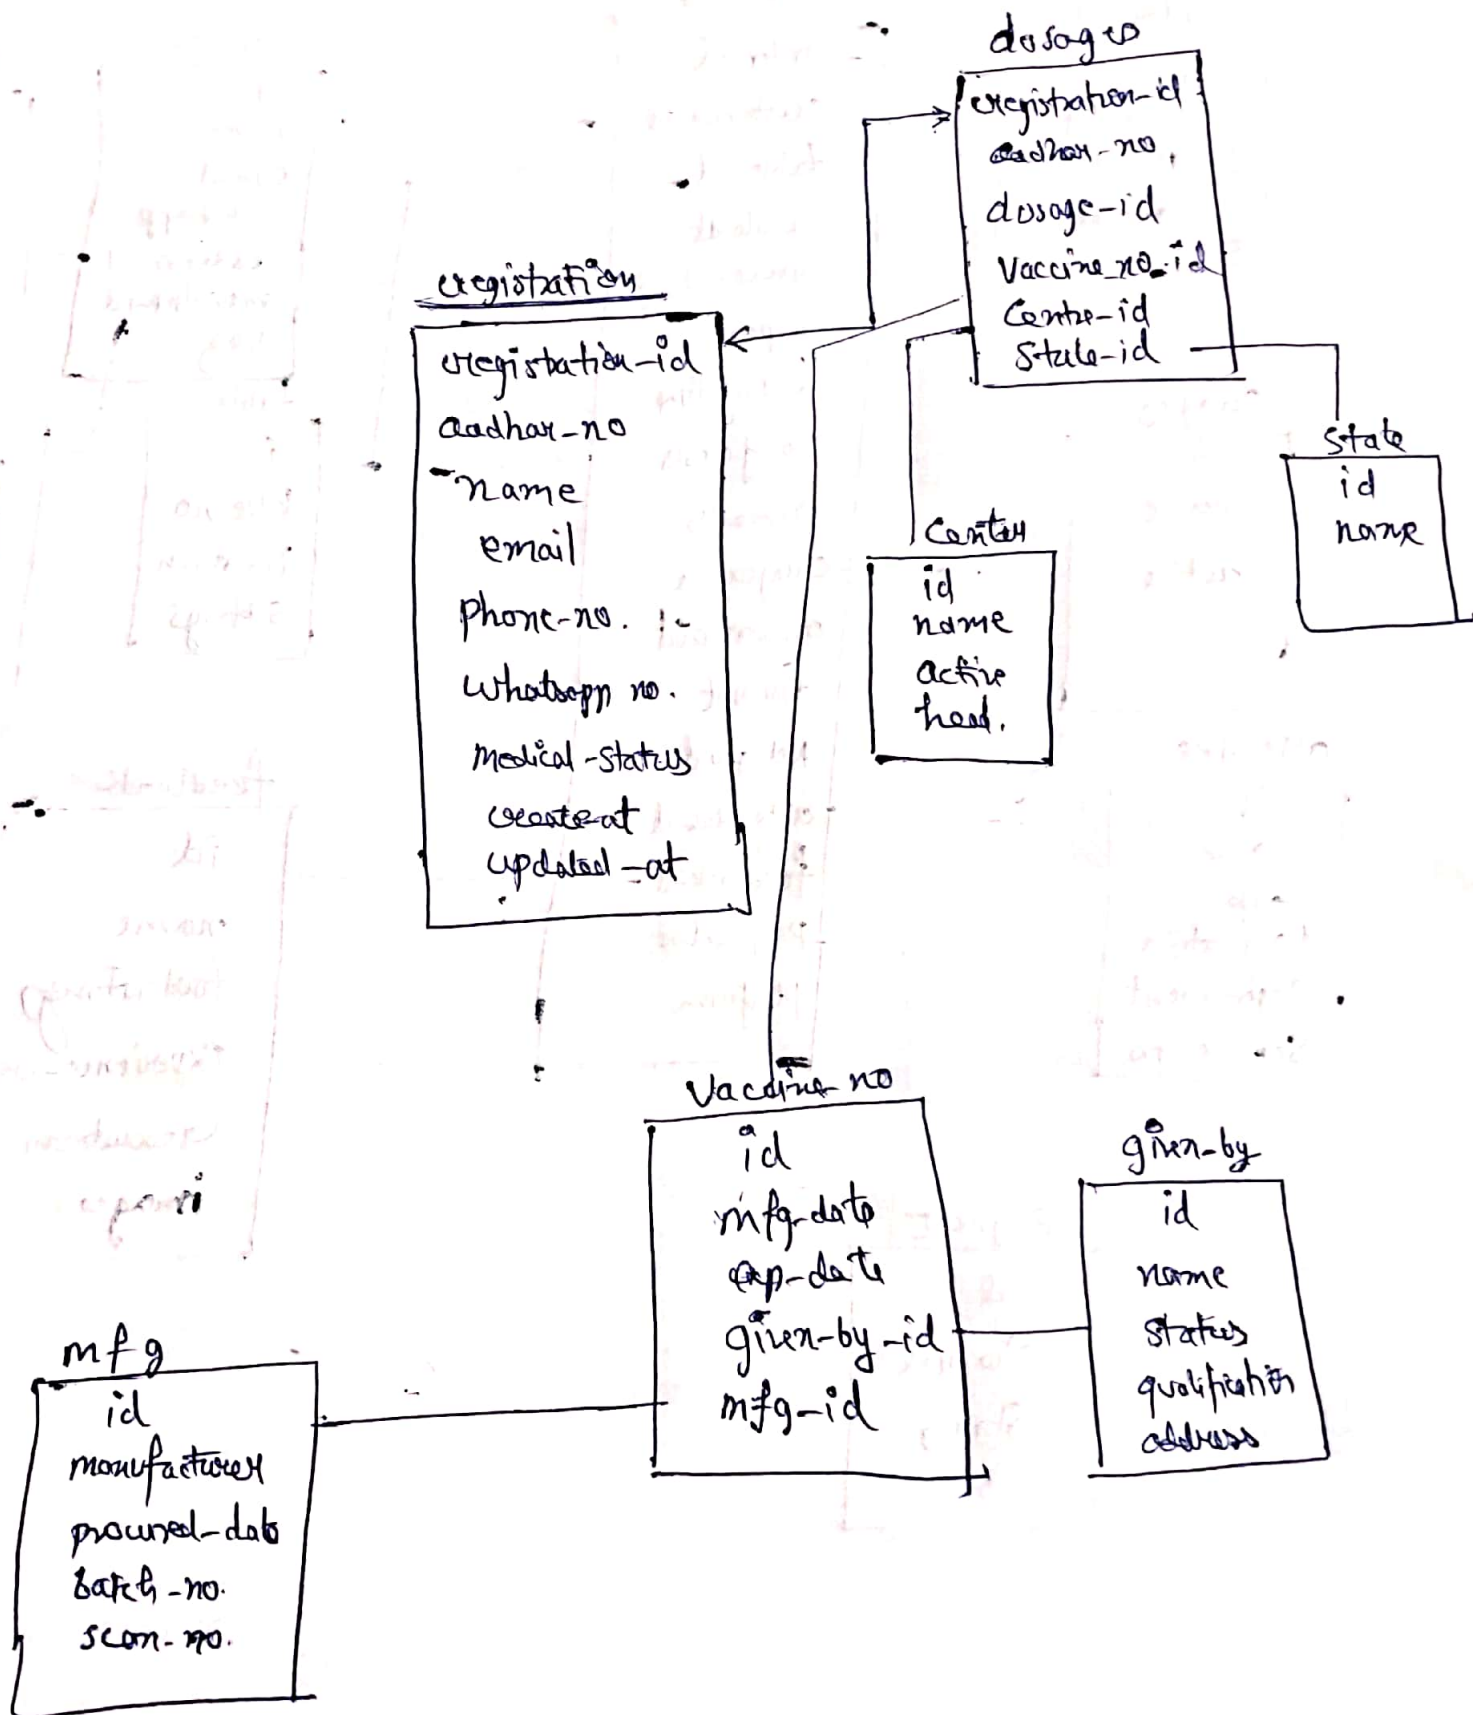 dosages
registration-id
aadhar-no.
dosage-id
Vaccine_no_id
Centre-id
State-id
registration
registration-id
aadhar-no
name
email
phone-no.
whatsapp no.
medical-status
create-at
updated-at
State
id
name
Center
id
name
active
head.
Vaccine no
id
mfg-date
exp-date
given-by-id
mfg-id
given-by
id
name
status
qualification
address
mfg
id
manufacturer
procured-date
batch-no.
scan-no.